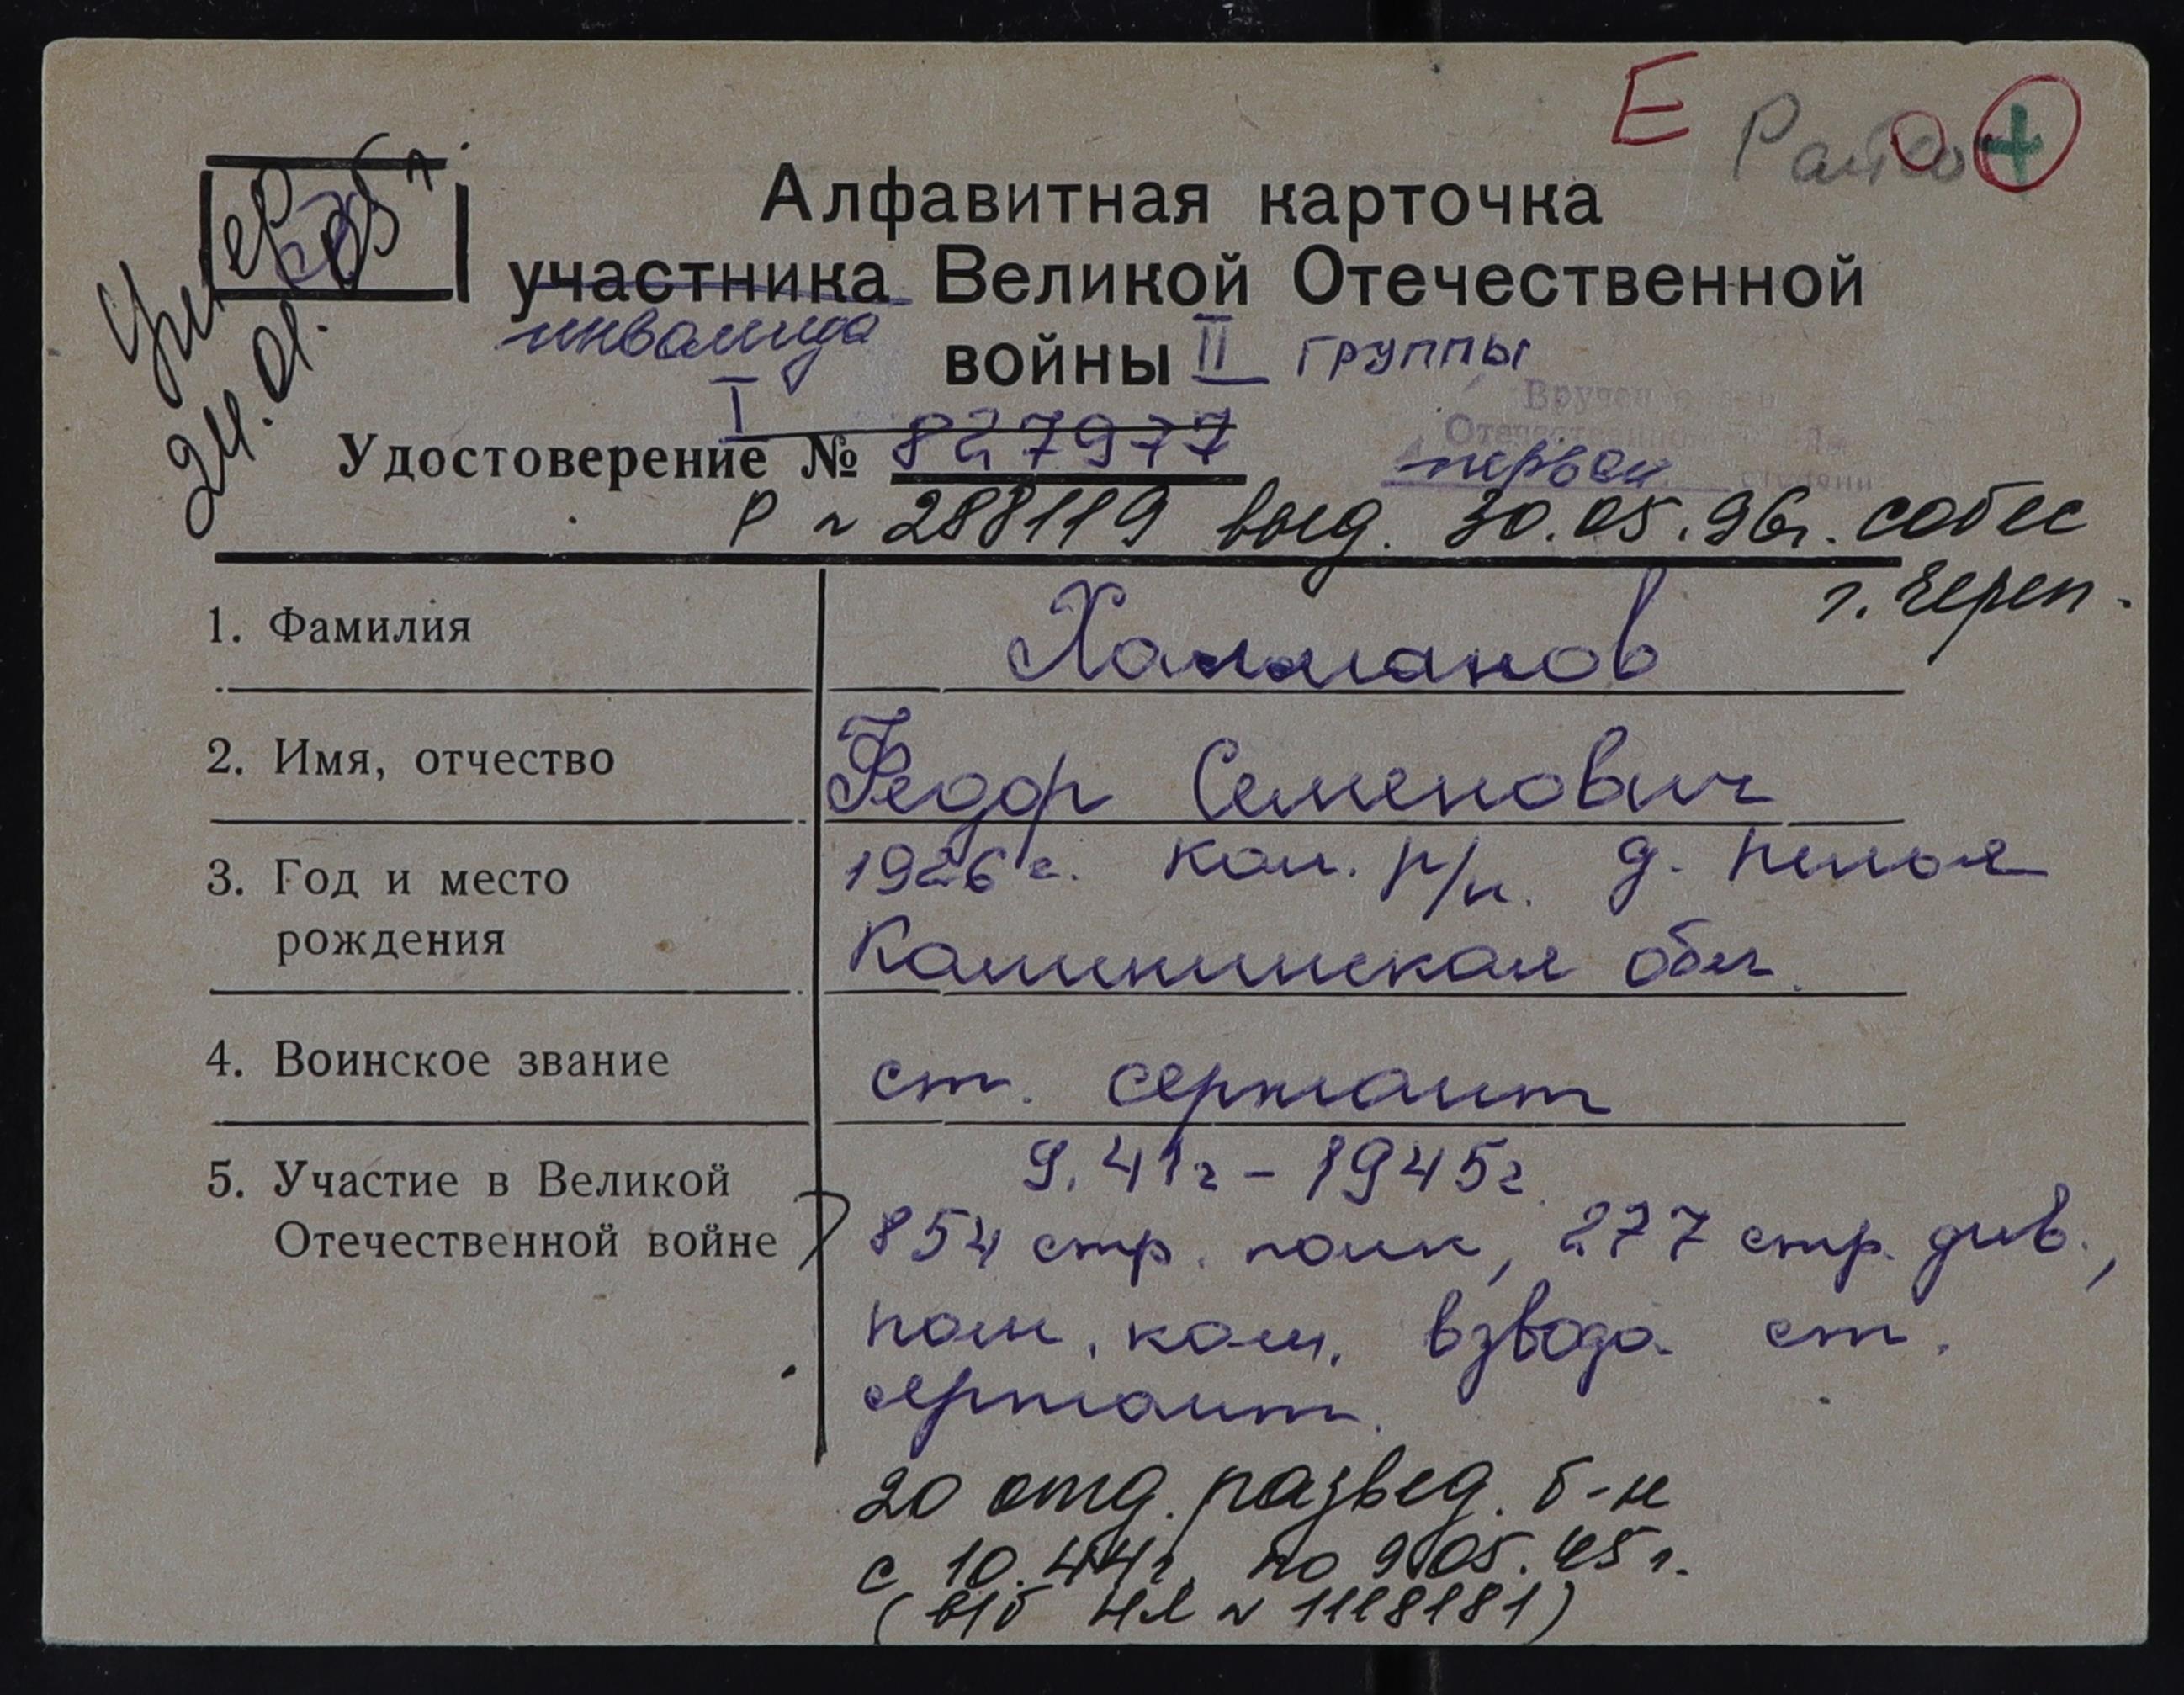 Е
Алфавитная карточка
участника Великой Отечественной
инвалида
войны II группы
I
Удостоверение № 827977
первой степени
Р № 288119 выд. 30.05.96г. собес
г. Череп.
Умер
24.01.05г.
1. Фамилия
Халманов
2. Имя, отчество
Федор Семенович
3. Год и место
рождения
1926 г. Кал. р/н. д.
Калининская обл.
4. Воинское звание
ст. сержант
5. Участие в Великой
Отечественной войне
9.41г – 1945г.
854 стр. полк, 277 стр. див.,
пом. ком. взвода ст.
сержант.
20 отд. развед. б-н
с 10.44г. по 9.05.45г.
(в/б НЛ № 1118181)